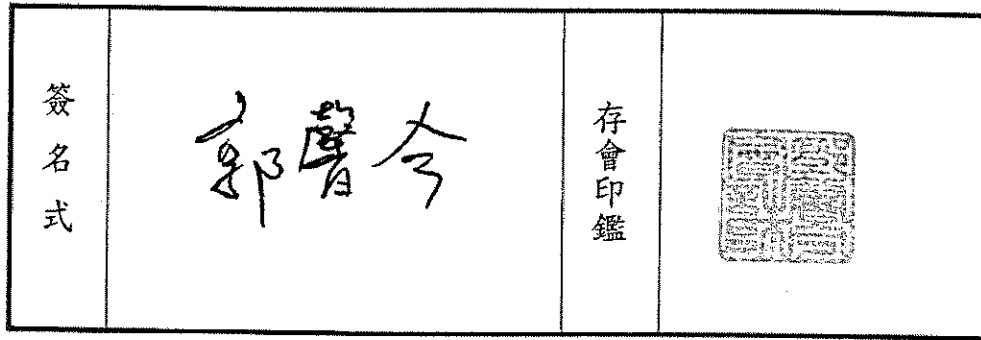 簽名式
郭馨令
存會印鑑